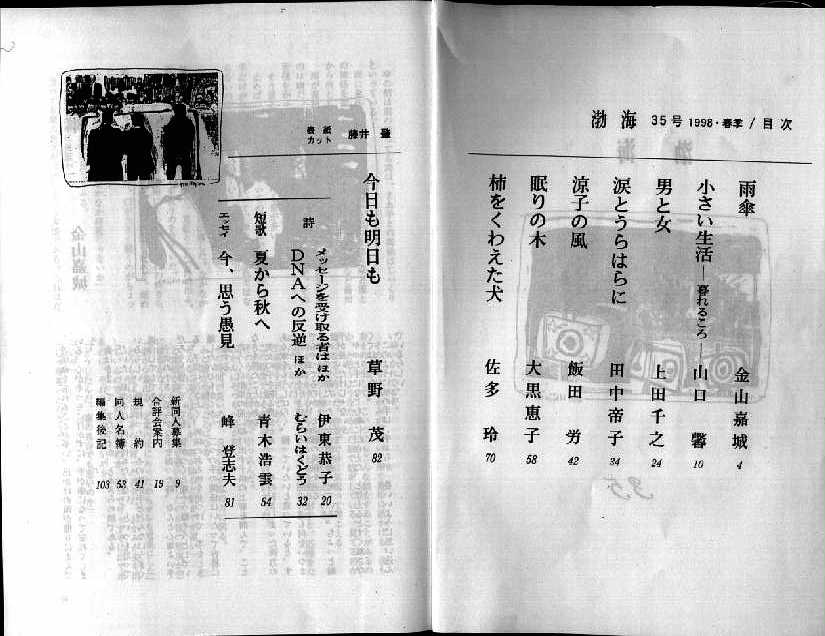 渤海 35号 1998・春季 / 目次
雨傘 金山嘉城 4
小さい生活―暮れるころ― 山口 馨 10
男と女 上田千之 24
涙とうらはらに 田中帝子 34
涼子の風 飯田 労 42
眠りの木 大黒恵子 58
柿をくわえた犬 佐多 玲 70
今日も明日も 草野 茂 82
表紙
カット 藤井
詩
メッセージを受け取る者は ほか 伊東恭子 20
DNAへの反逆 ほか むらいはくどう 32
短歌 夏から秋へ 青木浩雲 54
エッセイ 今、思う愚見 峰 登志夫 81
新同人募集 9
合評会案内 19
規約 41
同人名簿 53
編集後記 103
35
金山嘉城